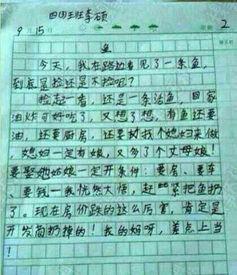 四四王班李硕
9月15日
2
鱼
今天,我在路边看见了一条鱼,
到底是捡还是不捡呢?
捡起一看,还是一条活鱼,回家
油炸可好吃了,又想了想,有鱼还要
油,还要厨房,还要找个媳妇来做
,媳妇一定有娘,又多了个丈母娘!
要娶她姑娘一定开条件:要房、要车、
要钱…我恍然大悟,赶紧把鱼扔
了。现在房价跌的这么厉害,肯定是
开发商扔掉的!我的妈呀,差点上当
!